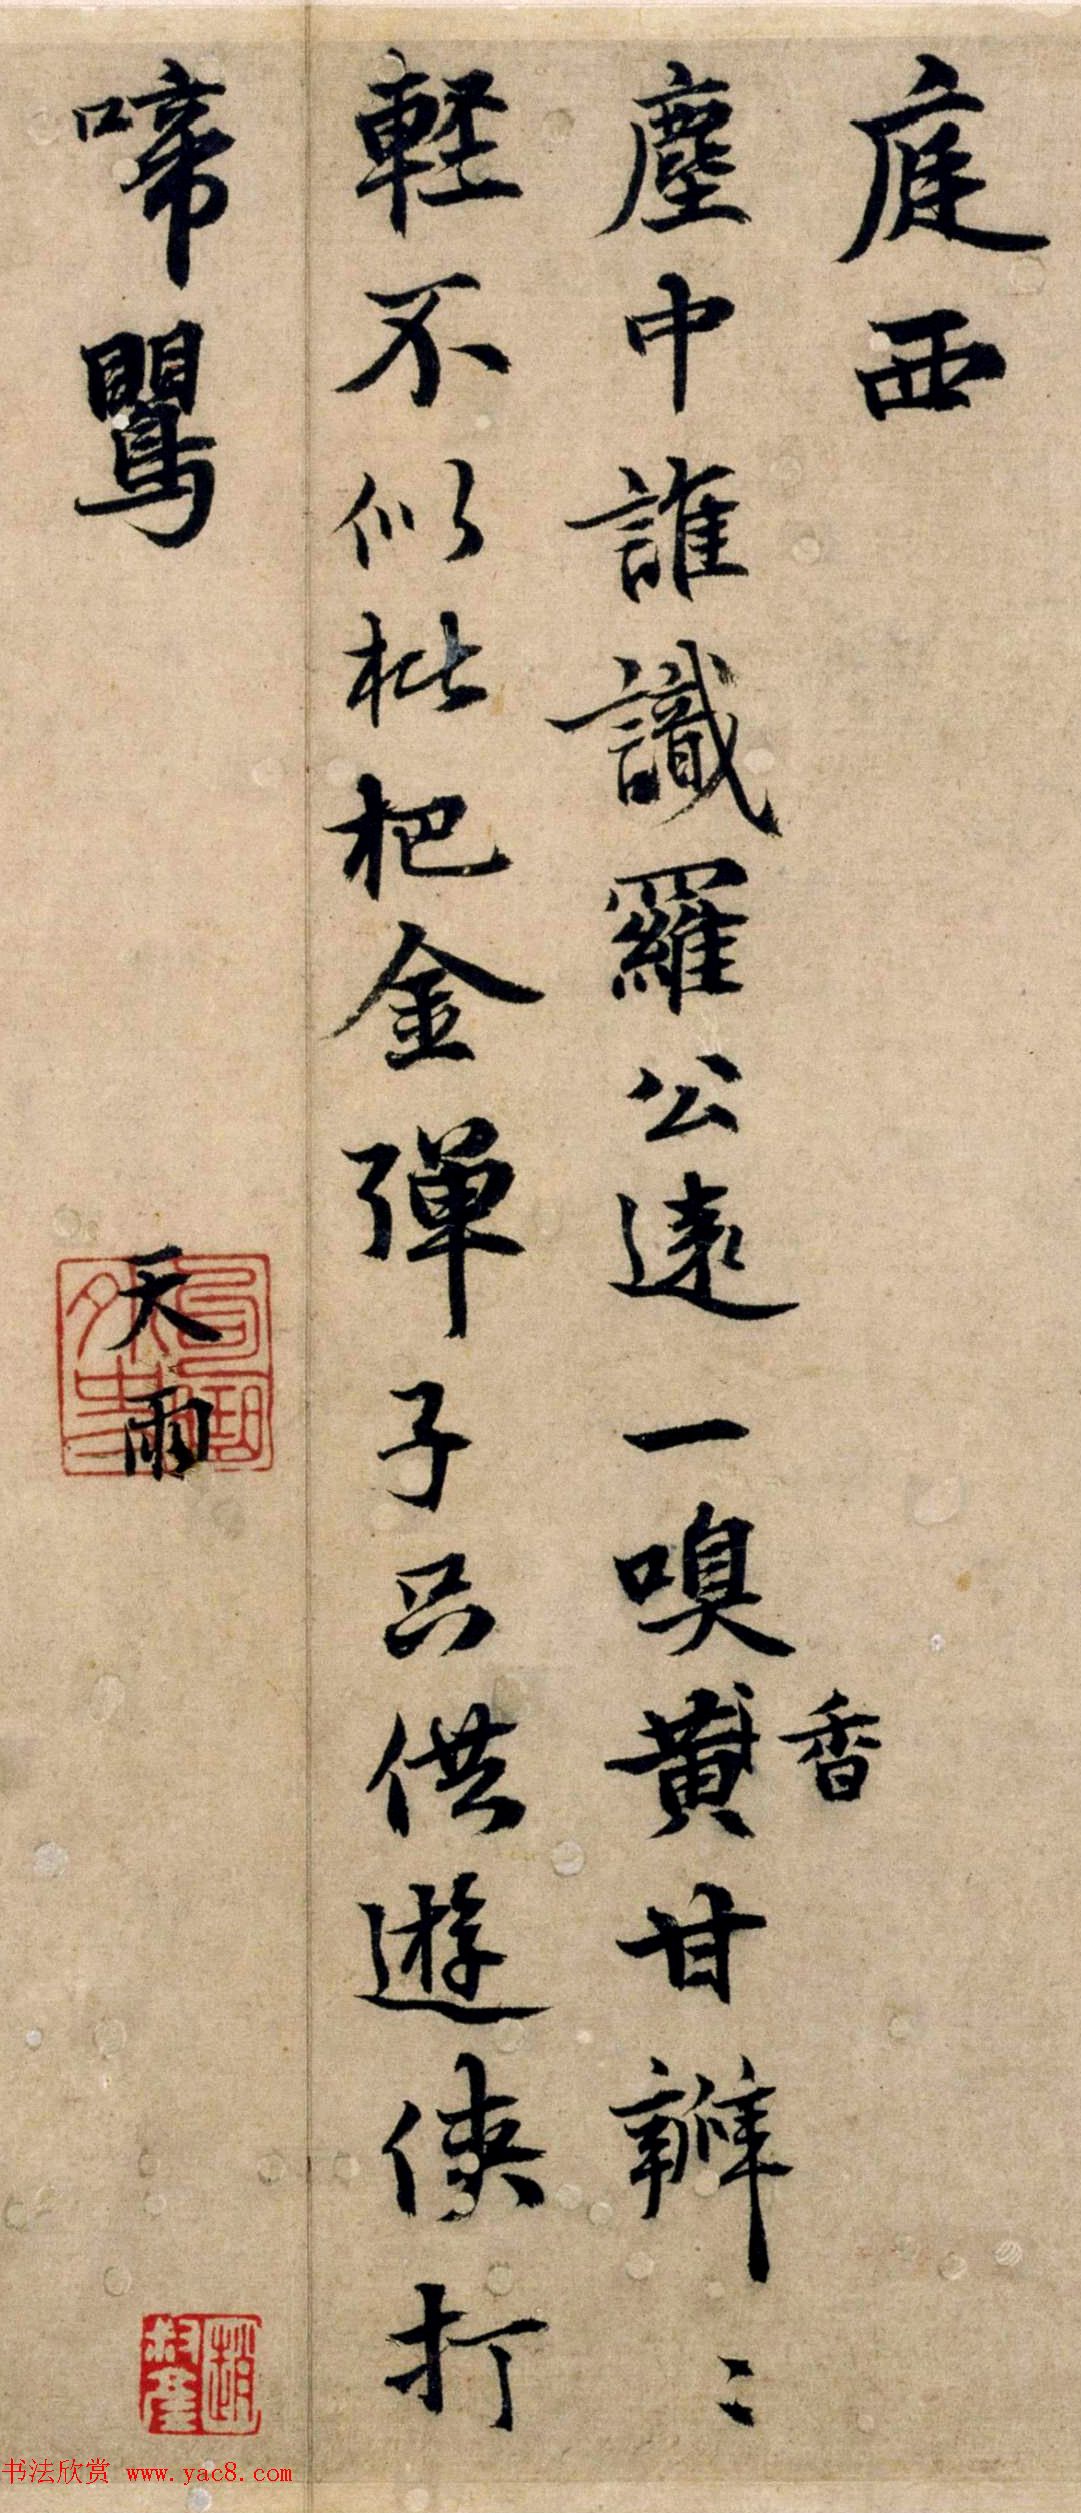 庭西
塵中誰識羅公遠一嗅黄香甘瓣瓣
輕不似枇杷金彈子只供遊俠打
啼鸎
天雨
书法欣赏 www.yac8.com